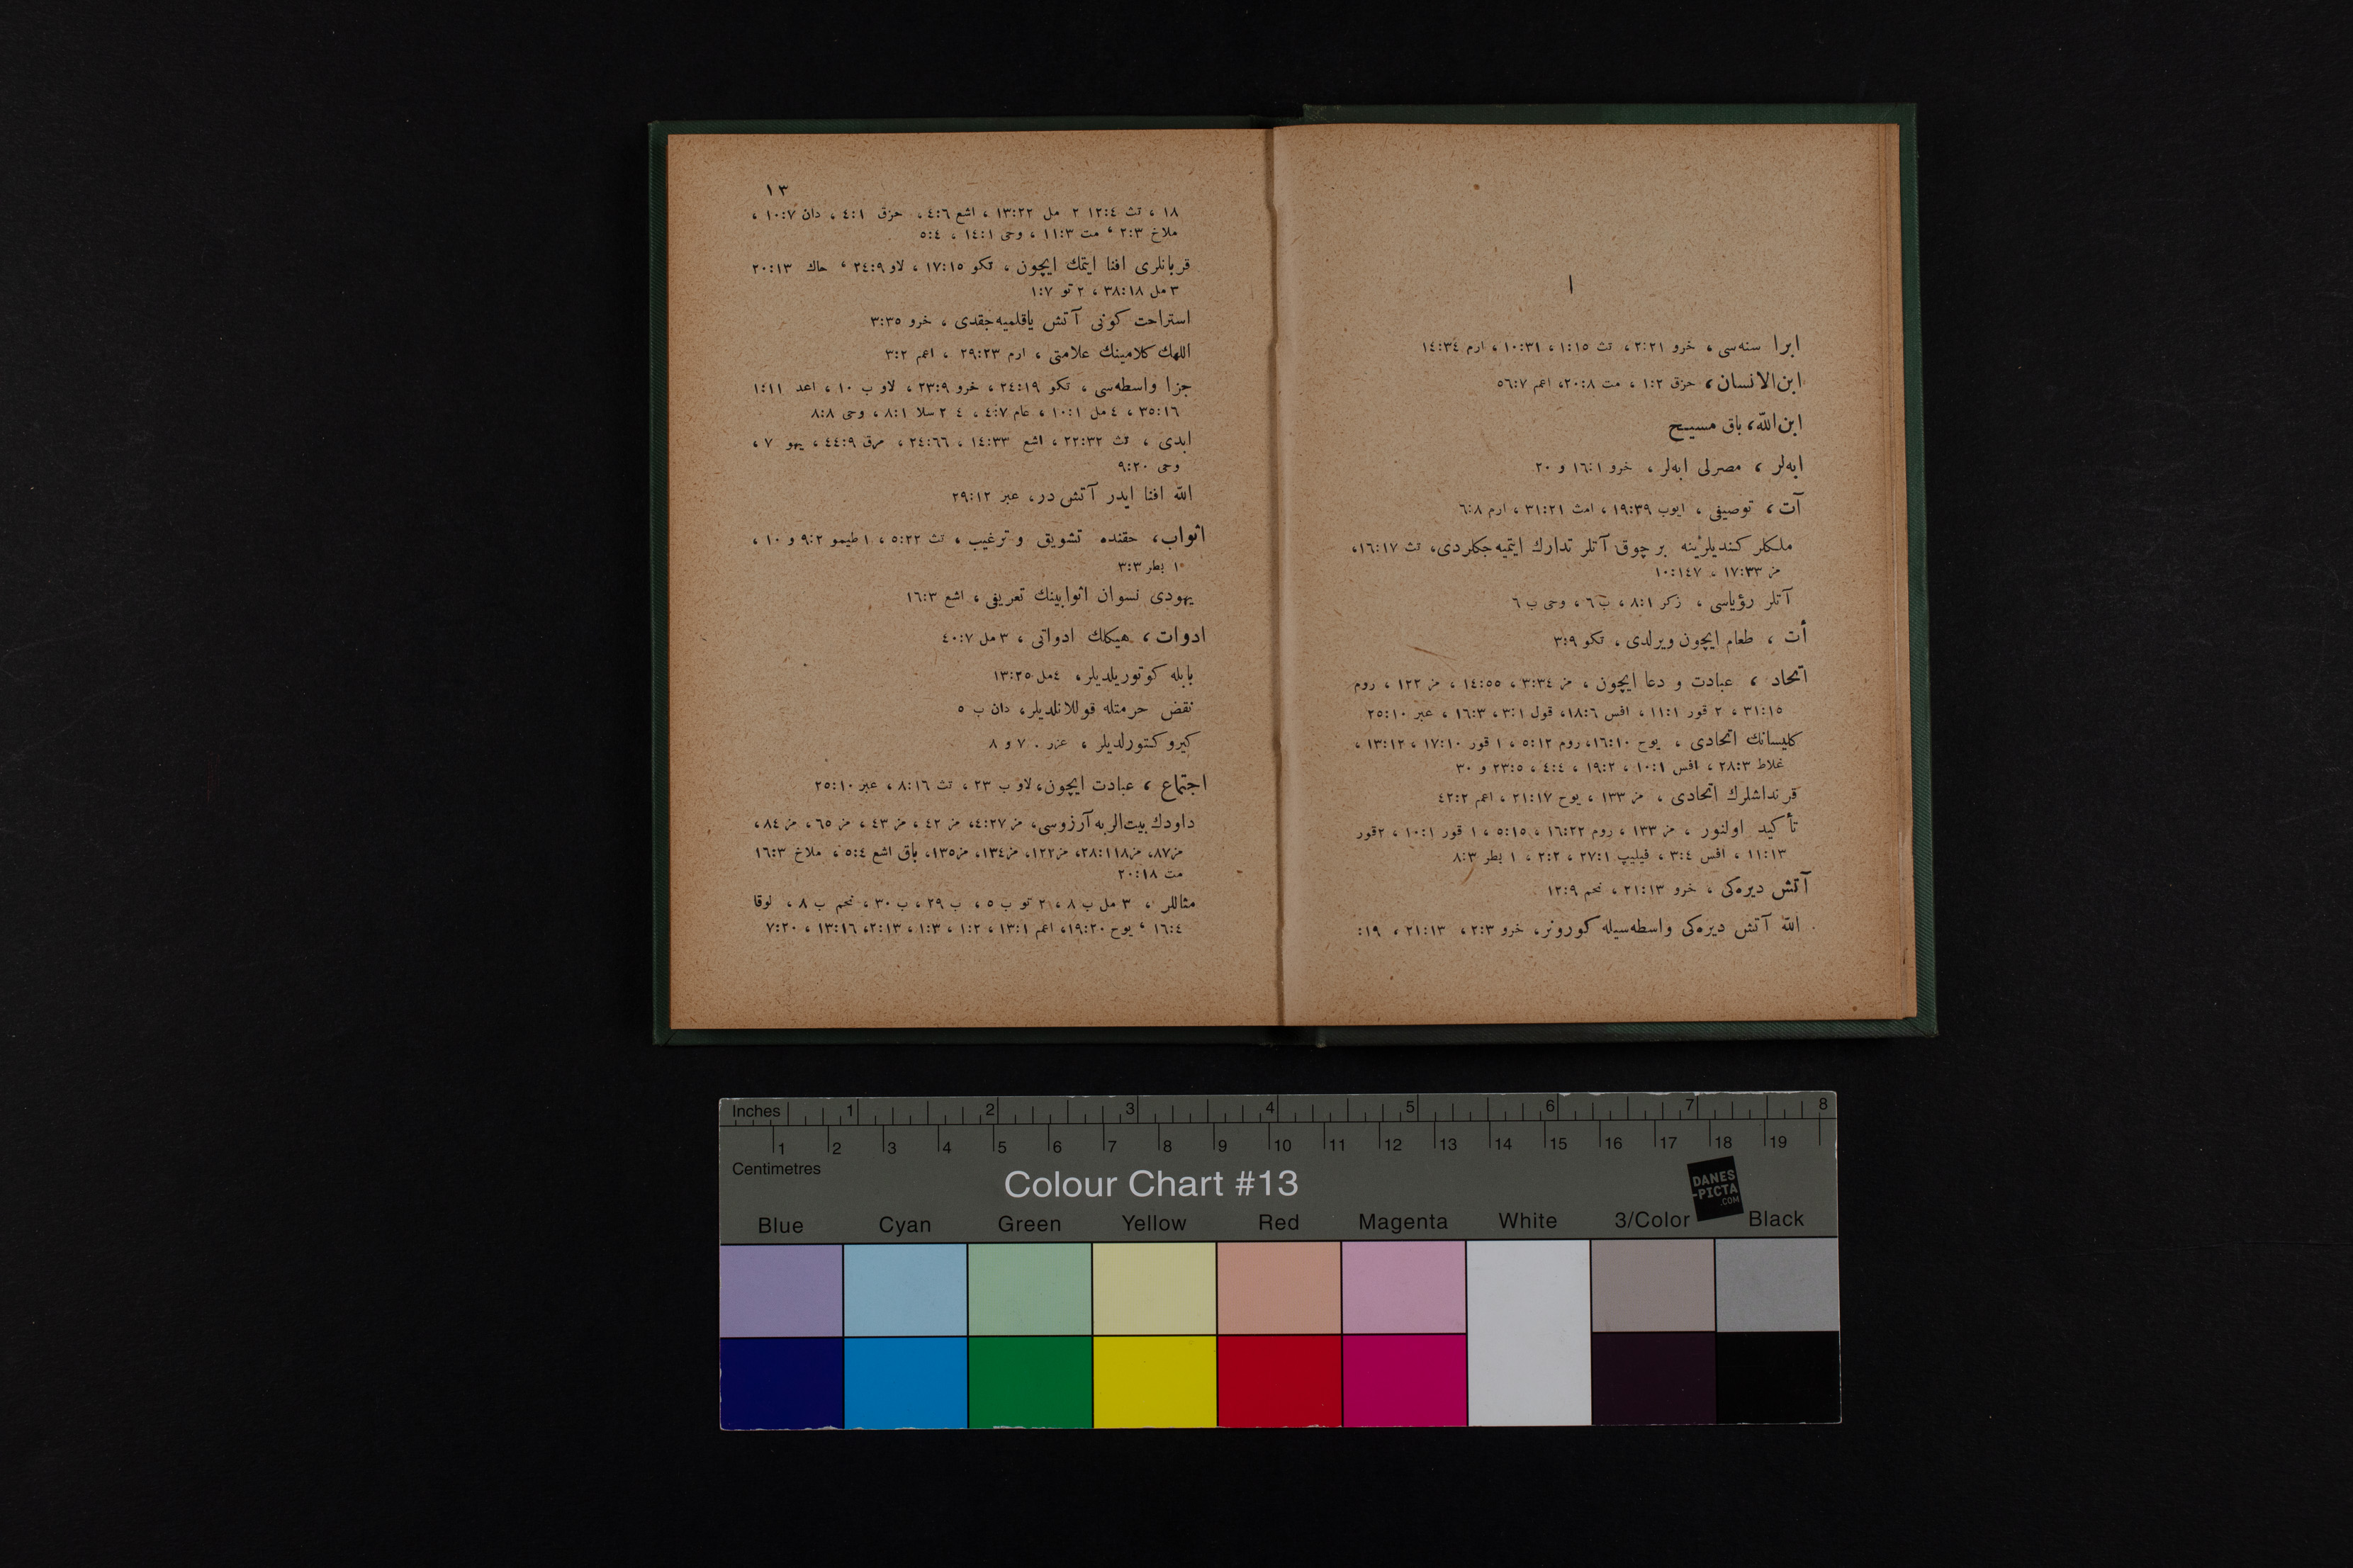 ا
ابرا سنه‌سی ، خرو ٢:٢١ ، تث ١:١٥ ، ١٠:٣١ ، ارم ١٤:٣٤
ابن‌الانسان ، حزق ١:٢ ، مت ٢٠:٨ ، اعم ٥٦:٧
ابن‌اللّٰه ، باق مسیح
ابه‌لر ، مصرلی ابه‌لر ، خرو ١٦:١ و ٢٠
آت ، توصیفی ، ایوب ١٩:٣٩ ، امث ٣١:٢١ ، ارم ٦:٨
ملکلر کندیلرینه بر چوق آتلر تدارك ایتمیه‌جکلردی ، تث ١٦:١٧ ،
مز ١٧:٣٣ ، ١٠:١٤٧
آتلر رؤیاسی ، زکر ٨:١ ، ب ٦ ، وحی ب ٦
أت ، طعام ایچون ویرلدی ، تکو ٣:٩
اتحاد ، عبادت و دعا ایچون ، مز ٣:٣٤ ، ١٤:٥٥ ، مز ١٢٢ ، روم
٣١:١٥ ، ٢ قور ١١:١ ، افس ١٨:٦ ، قول ٣:١ ، ١٦:٣ ، عبر ٢٥:١٠
کلیسانك اتحادی ، یوح ١٦:١٠ ، روم ٥:١٢ ، ١ قور ١٧:١٠ ، ١٣:١٢ ،
غلاط ٢٨:٣ ، افس ١٠:١ ، ١٩:٢ ، ٤:٤ ، ٢٣:٥ و ٣٠
قرنداشلرك اتحادی ، مز ١٣٣ ، یوح ٢١:١٧ ، اعم ٤٢:٢
تأکید اولنور ، مز ١٣٣ ، روم ١٦:٢٢ ، ٥:١٥ ، ١ قور ١٠:١ ، ٢قور
١١:١٣ ، افس ٣:٤ ، فیلیپ ٢٧:١ ، ٢:٢ ، ١ بطر ٨:٣
آتش دیره‌کی ، خرو ٢١:١٣ ، نحم ١٢:٩
اللّٰه آتش دیره‌کی واسطه‌سیله کورونر ، خرو ٢:٣ ، ٢١:١٣ ، ١٩:
١٣
١٨ ، تث ١٢:٤ ٢ مل ١٣:٢٢ ، اشع ٤:٦ ، حزق ٤:١ ، دان ١٠:٧ ،
ملاخ ٢:٣ ، مت ١١:٣ ، وحی ١٤:١ ، ٥:٤
قربانلری افنا ایتمك ایچون ، تکو ١٧:١٥ ، لاو ٢٤:٩ ، حاك ٢٠:١٣
٣ مل ٣٨:١٨ ، ٢ تو ١:٧
استراحت کونی آتش یاقلمیه‌جقدی ، خرو ٣:٣٥
اللهك کلامینك علامتی ، ارم ٢٩:٢٣ ، اعم ٣:٢
جزا واسطه‌سی ، تکو ٢٤:١٩ ، خرو ٢٣:٩ ، لاو ب ١٠ ، اعد ١:١١
٣٥:١٦ ، ٤ مل ١٠:١ ، عام ٤:٧ ، ٤ ٢ سلا ٨:١ ، وحی ٨:٨
ابدی ، تث ٢٢:٣٢ ، اشع ١٤:٣٣ ، ٢٤:٦٦ ، مرق ٤٤:٩ ، یهو ٧ ،
وحی ٩:٢٠
اللّٰه افنا ایدر آتش‌در ، عبر ٢٩:١٢
اثواب ، حقنده تشویق و ترغیب ، تث ٥:٢٢ ، ١ طیمو ٩:٢ و ١٠ ،
١ بطر ٣:٣
یهودی نسوان اثوابینك تعریفی ، اشع ١٦:٣
ادوات ، هیکلك ادواتی ، ٣ مل ٤٠:٧
بابله کوتوریلدیلر ، ٤مل ١٣:٢٥
نقض حرمتله قوللانلدیلر ، دان ب ٥
کیرو کتورلدیلر ، عزر . ٧ و ٨
اجتماع ، عبادت ایچون ، لاو ب ٢٣ ، تث ٨:١٦ ، عبر ٢٥:١٠
داودك بیت‌الربه آرزوسی ، مز ٤:٢٧ ، مز ٤٢ ، مز ٤٣ ، مز ٦٥ ، مز ٨٤ ،
مز ٨٧ ، مز ٢٨:١١٨ ، مز ١٢٢ ، مز ١٣٤ ، مز ١٣٥ ، باق اشع ٥:٤ ، ملاخ ١٦:٣
مت ٢٠:١٨
مثاللر ، ٣ مل ب ٨ ، ٢ تو ب ٥ ، ب ٢٩ ، ب ٣٠ ، نحم ب ٨ ، لوقا
١٦:٤ ، یوح ١٩:٢٠ ، اعم ١٣:١ ، ١:٢ ، ١:٣ ، ٢:١٣ ، ١٣:١٦ ، ٧:٢٠
Inches 1 2 3 4 5 6 7 8
1 2 3 4 5 6 7 8 9 10 11 12 13 14 15 16 17 18 19
Centimetres
Colour Chart #13
DANES
-PICTA
.COM
Blue Cyan Green Yellow Red Magenta White 3/Color Black